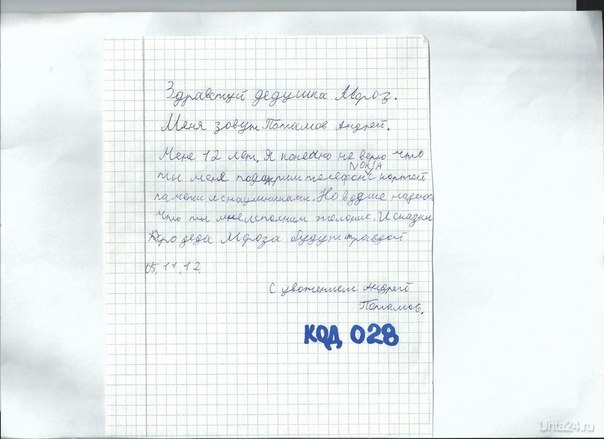 Здравствуй дедушка Мороз.
Меня зовут Потамов Андрей.
Мене 12 лет. Я конечно не верю что
NOKIA
ты меня подариш телефон с картой
памяти и с наушниками. Но в душе надеюсь
что ты мне исполниш желание. И сказки
про деда Мороза будут правдой
05.11.12.
С уважением Андрей
Потамов.
КОД 028
Uhta24.ru